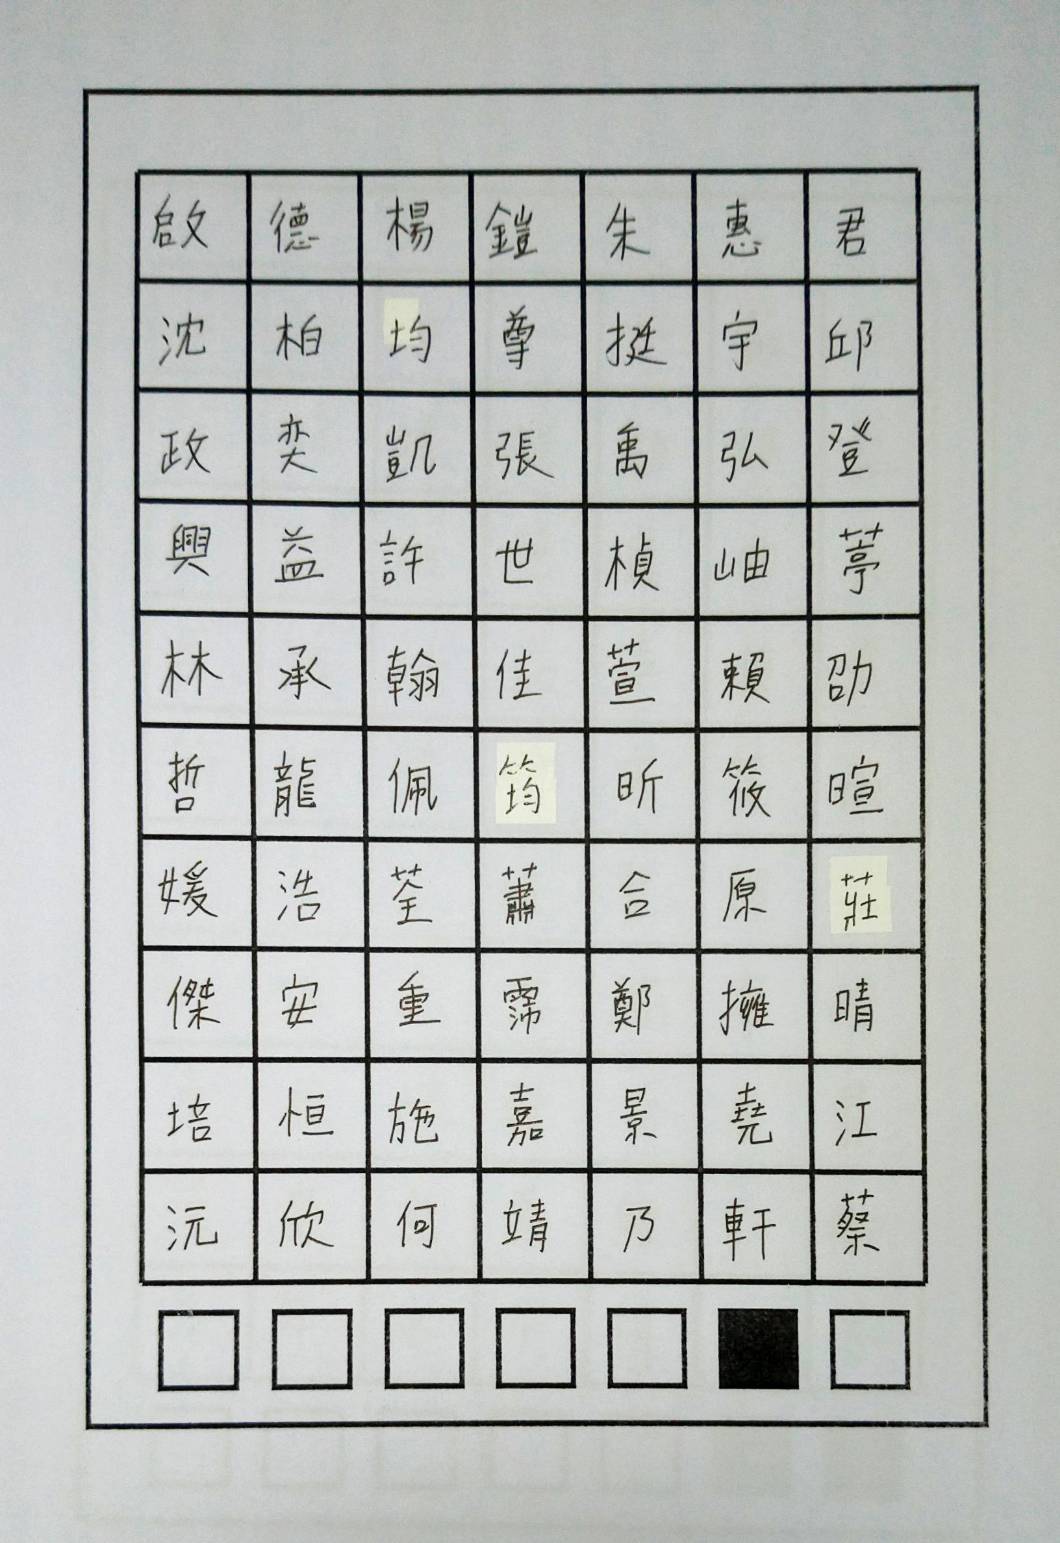 啟 德 楊 鎧 朱 惠 君
沈 柏 均 尊 挺 宇 邱
政 奕 凱 張 禹 弘 登
興 益 許 世 楨 岫 葶
林 承 翰 佳 萱 賴 劭
哲 龍 佩 筠 昕 筱 暄
媛 浩 荃 蕭 合 原 莊
傑 安 重 霈 鄭 擁 晴
培 恒 施 嘉 景 堯 江
沅 欣 何 靖 乃 軒 蔡